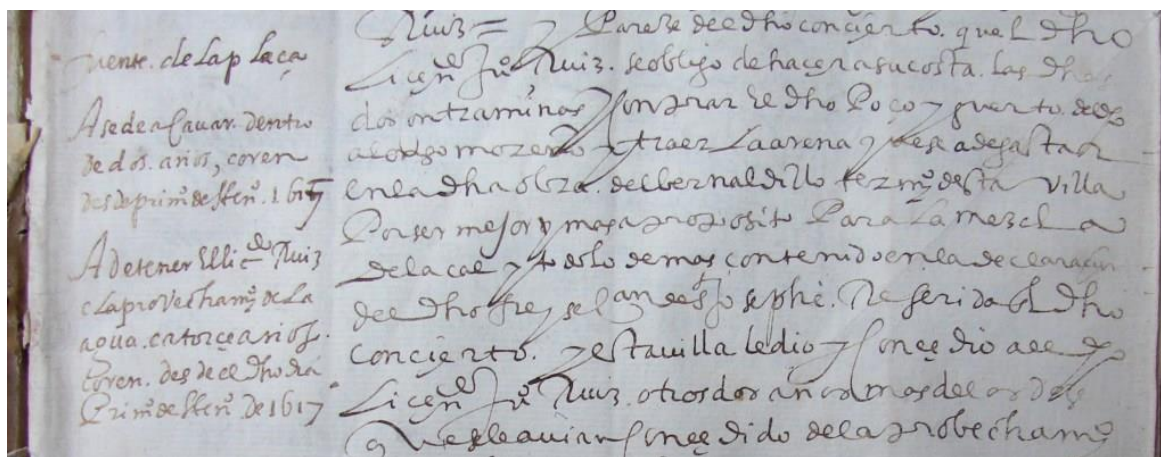 fuente. de La plaça
A se de acauar. dentro
de dos. años, coren
desde prim.º de Hen.º 1617
A de tener El lic.do Ruiz
el aprovecham.º de La
agua. catorçe años.
Coren. desde el dho dia
Prim.º de Hen.º De 1617
Ruiz = y Pareze de el dho conçierto. que el dho
Liçen.do Ju.º Ruiz. se obligo de haçer a su costa. las dhas
dos contraminas y conprar el dho Poço y guerto. de
alonso moreno y traer La arena que se a de gastar
en la dha obra. del bernaldillo term.º desta villa
Por ser mejor y mas a proposito Para La mezcla
de la cal y todo lo demas contenido en la declaraçion
de el dho frey Josephe. Referida el dho
Conçierto. y esta villa le dio y Conçedio a el dho
Liçen.do Ju.º Ruiz. otros dos años mas de los doze
que se le avian Conçedido de el aprobecham.º